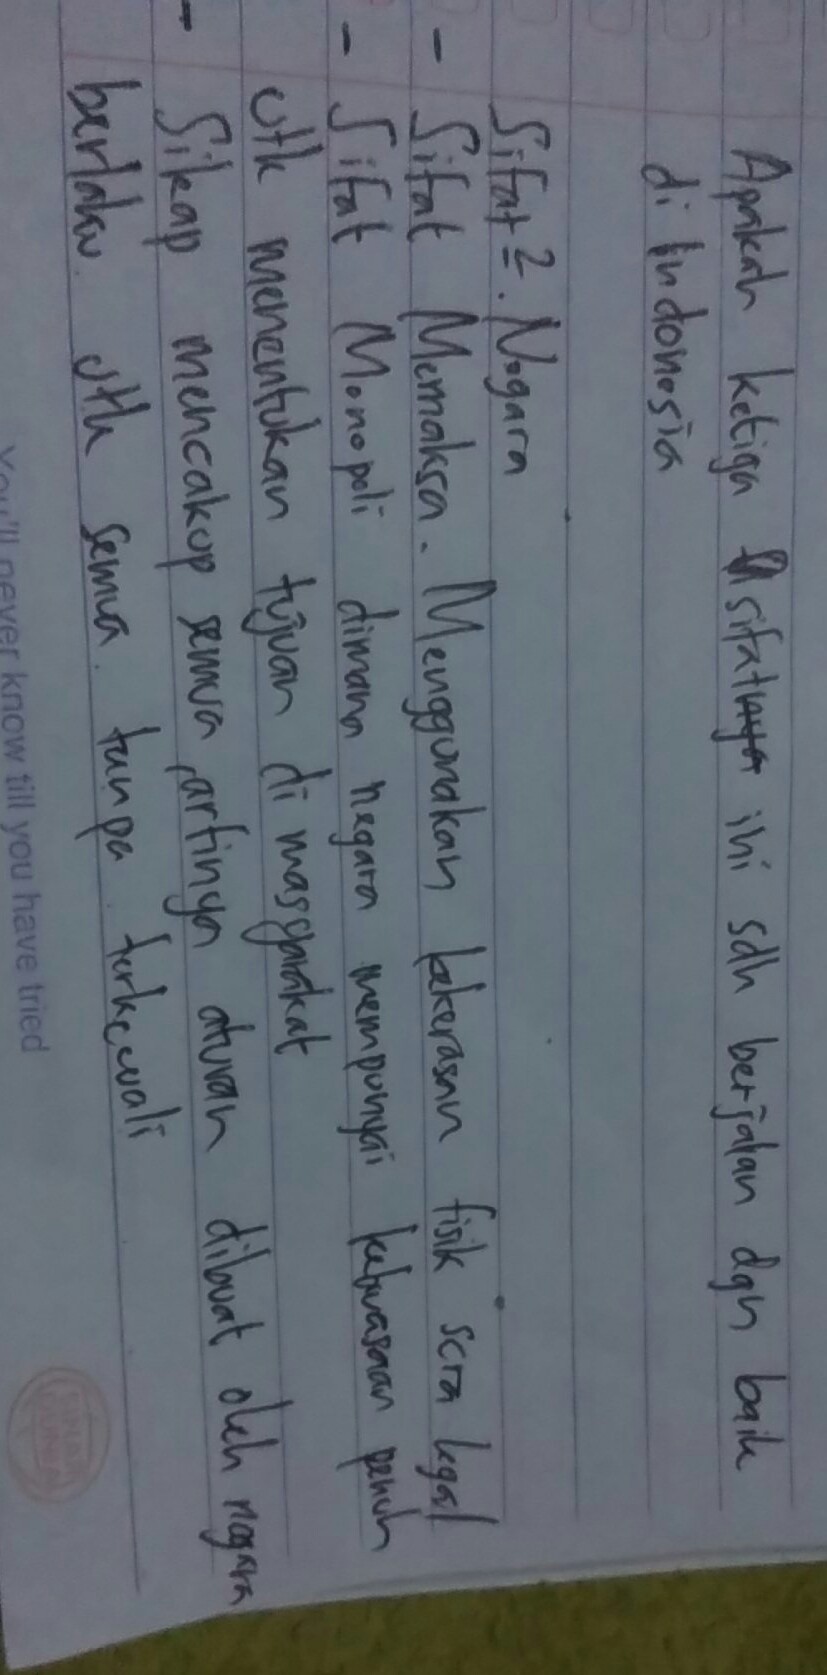 Apakah ketiga sifatnya ini sdh berjalan dgn baik
di Indonesia
Sifat2 Negara
- Sifat Memaksa. Menggunakan kekerasan fisik scra legal
- Sifat Monopoli dimana negara mempunyai kekuasaan penuh
utk menentukan tujuan di masyarakat
- Sikap mencakup semua, artinya aturan dibuat oleh negara
berlaku utk semua tanpa terkecuali
You'll never know till you have tried